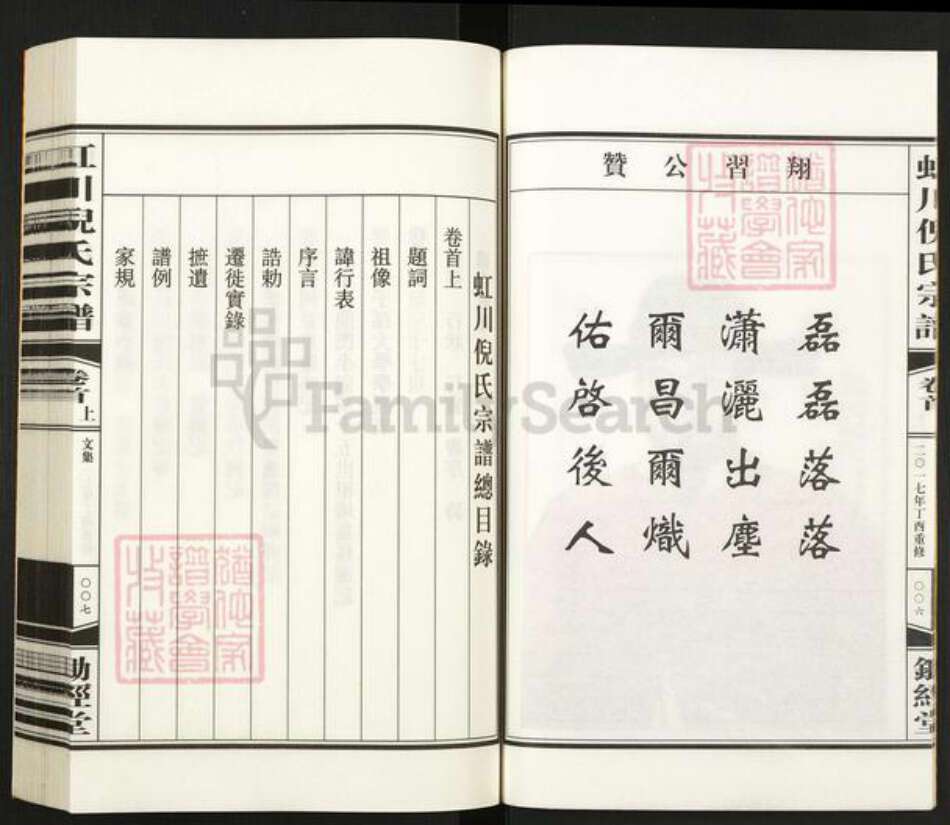 虹川倪氏宗譜
卷首
二〇一七年丁酉重修
〇〇六
翔習公贊
磊磊落落
瀟灑出塵
爾昌爾熾
佑啓後人
虹川倪氏宗譜總目錄
卷首上
題詞
祖像
諱行表
序言
誥勅
遷徙實錄
摭遺
譜例
家規
虹川倪氏宗譜
卷首上
文集
〇〇七
FamilySearch